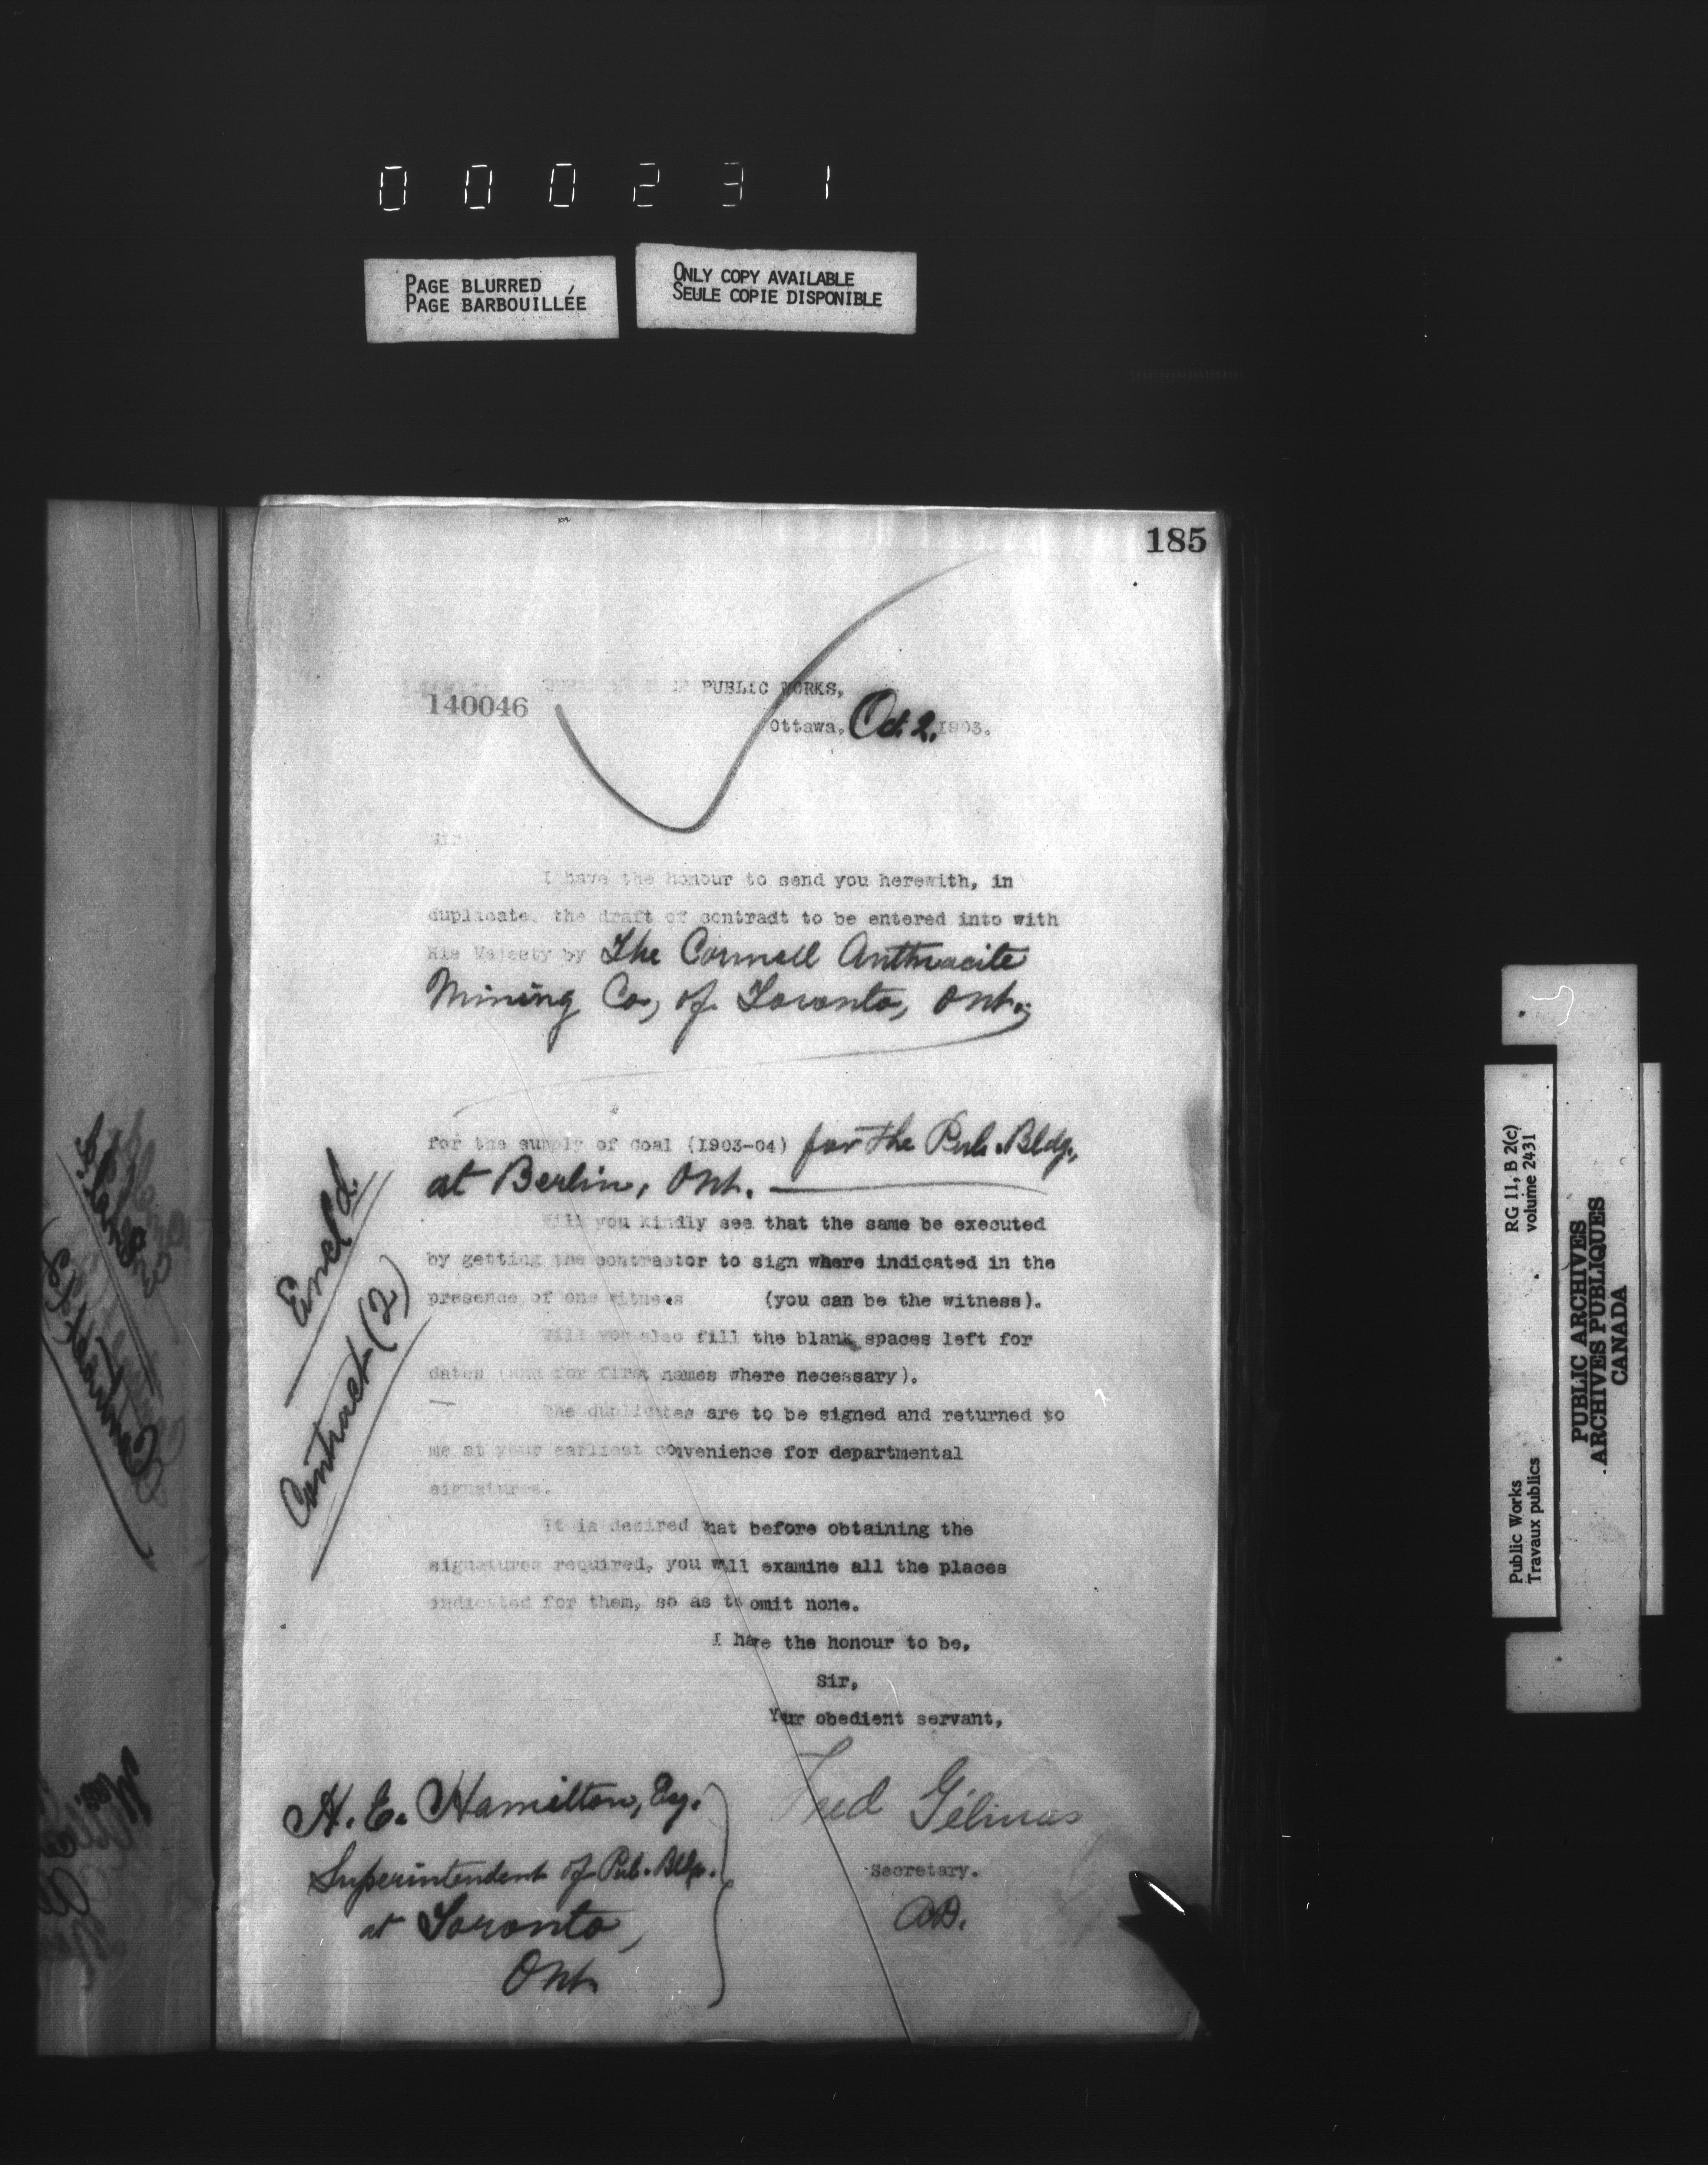 000231
PAGE BLURRED
PAGE BARBOUILLÉE
ONLY COPY AVAILABLE
SEULE COPIE DISPONIBLE
185
PUBLIC WORKS,
140046
Ottawa, Oct. 2, 1903.
Sir
I have the honour to send you herewith, in
duplicate, the draft of contradt to be entered into with
His Majesty by The Connell Anthracite
Mining Co., of Toronto, Ont.,
for the supply of coal (1903-04) for the Pub. Bldg.,
at Berlin, Ont.
Will you kindly see that the same be executed
by getting the contractor to sign where indicated in the
presence of one witness (you can be the witness).
Will you also fill the blank spaces left for
dates (and for first names where necessary).
The duplicates are to be signed and returned to
me at your earliest convenience for departmental
signatures.
It is desired that before obtaining the
signatures required, you will examine all the places
indicated for them, so as to omit none.
I have the honour to be,
Sir,
Your obedient servant,
Encl'd.
Contract (2)
Fred Gélinas
Secretary.
H. E. Hamilton, Esq.
Superintendent of Pub. Bldgs.
at Toronto,
Ont.
RG 11, B 2(c)
volume 2431
Public Works
Travaux publics
PUBLIC ARCHIVES
ARCHIVES PUBLIQUES
CANADA